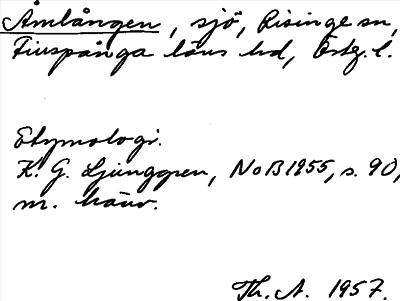 Åmlången, sjö, Risinge sn,
Finspånga läns hd, Östg. l.
Etymologi.
K. G. Ljunggren, NoB 1955, s. 90,
m. hänv.
Th. A. 1957.